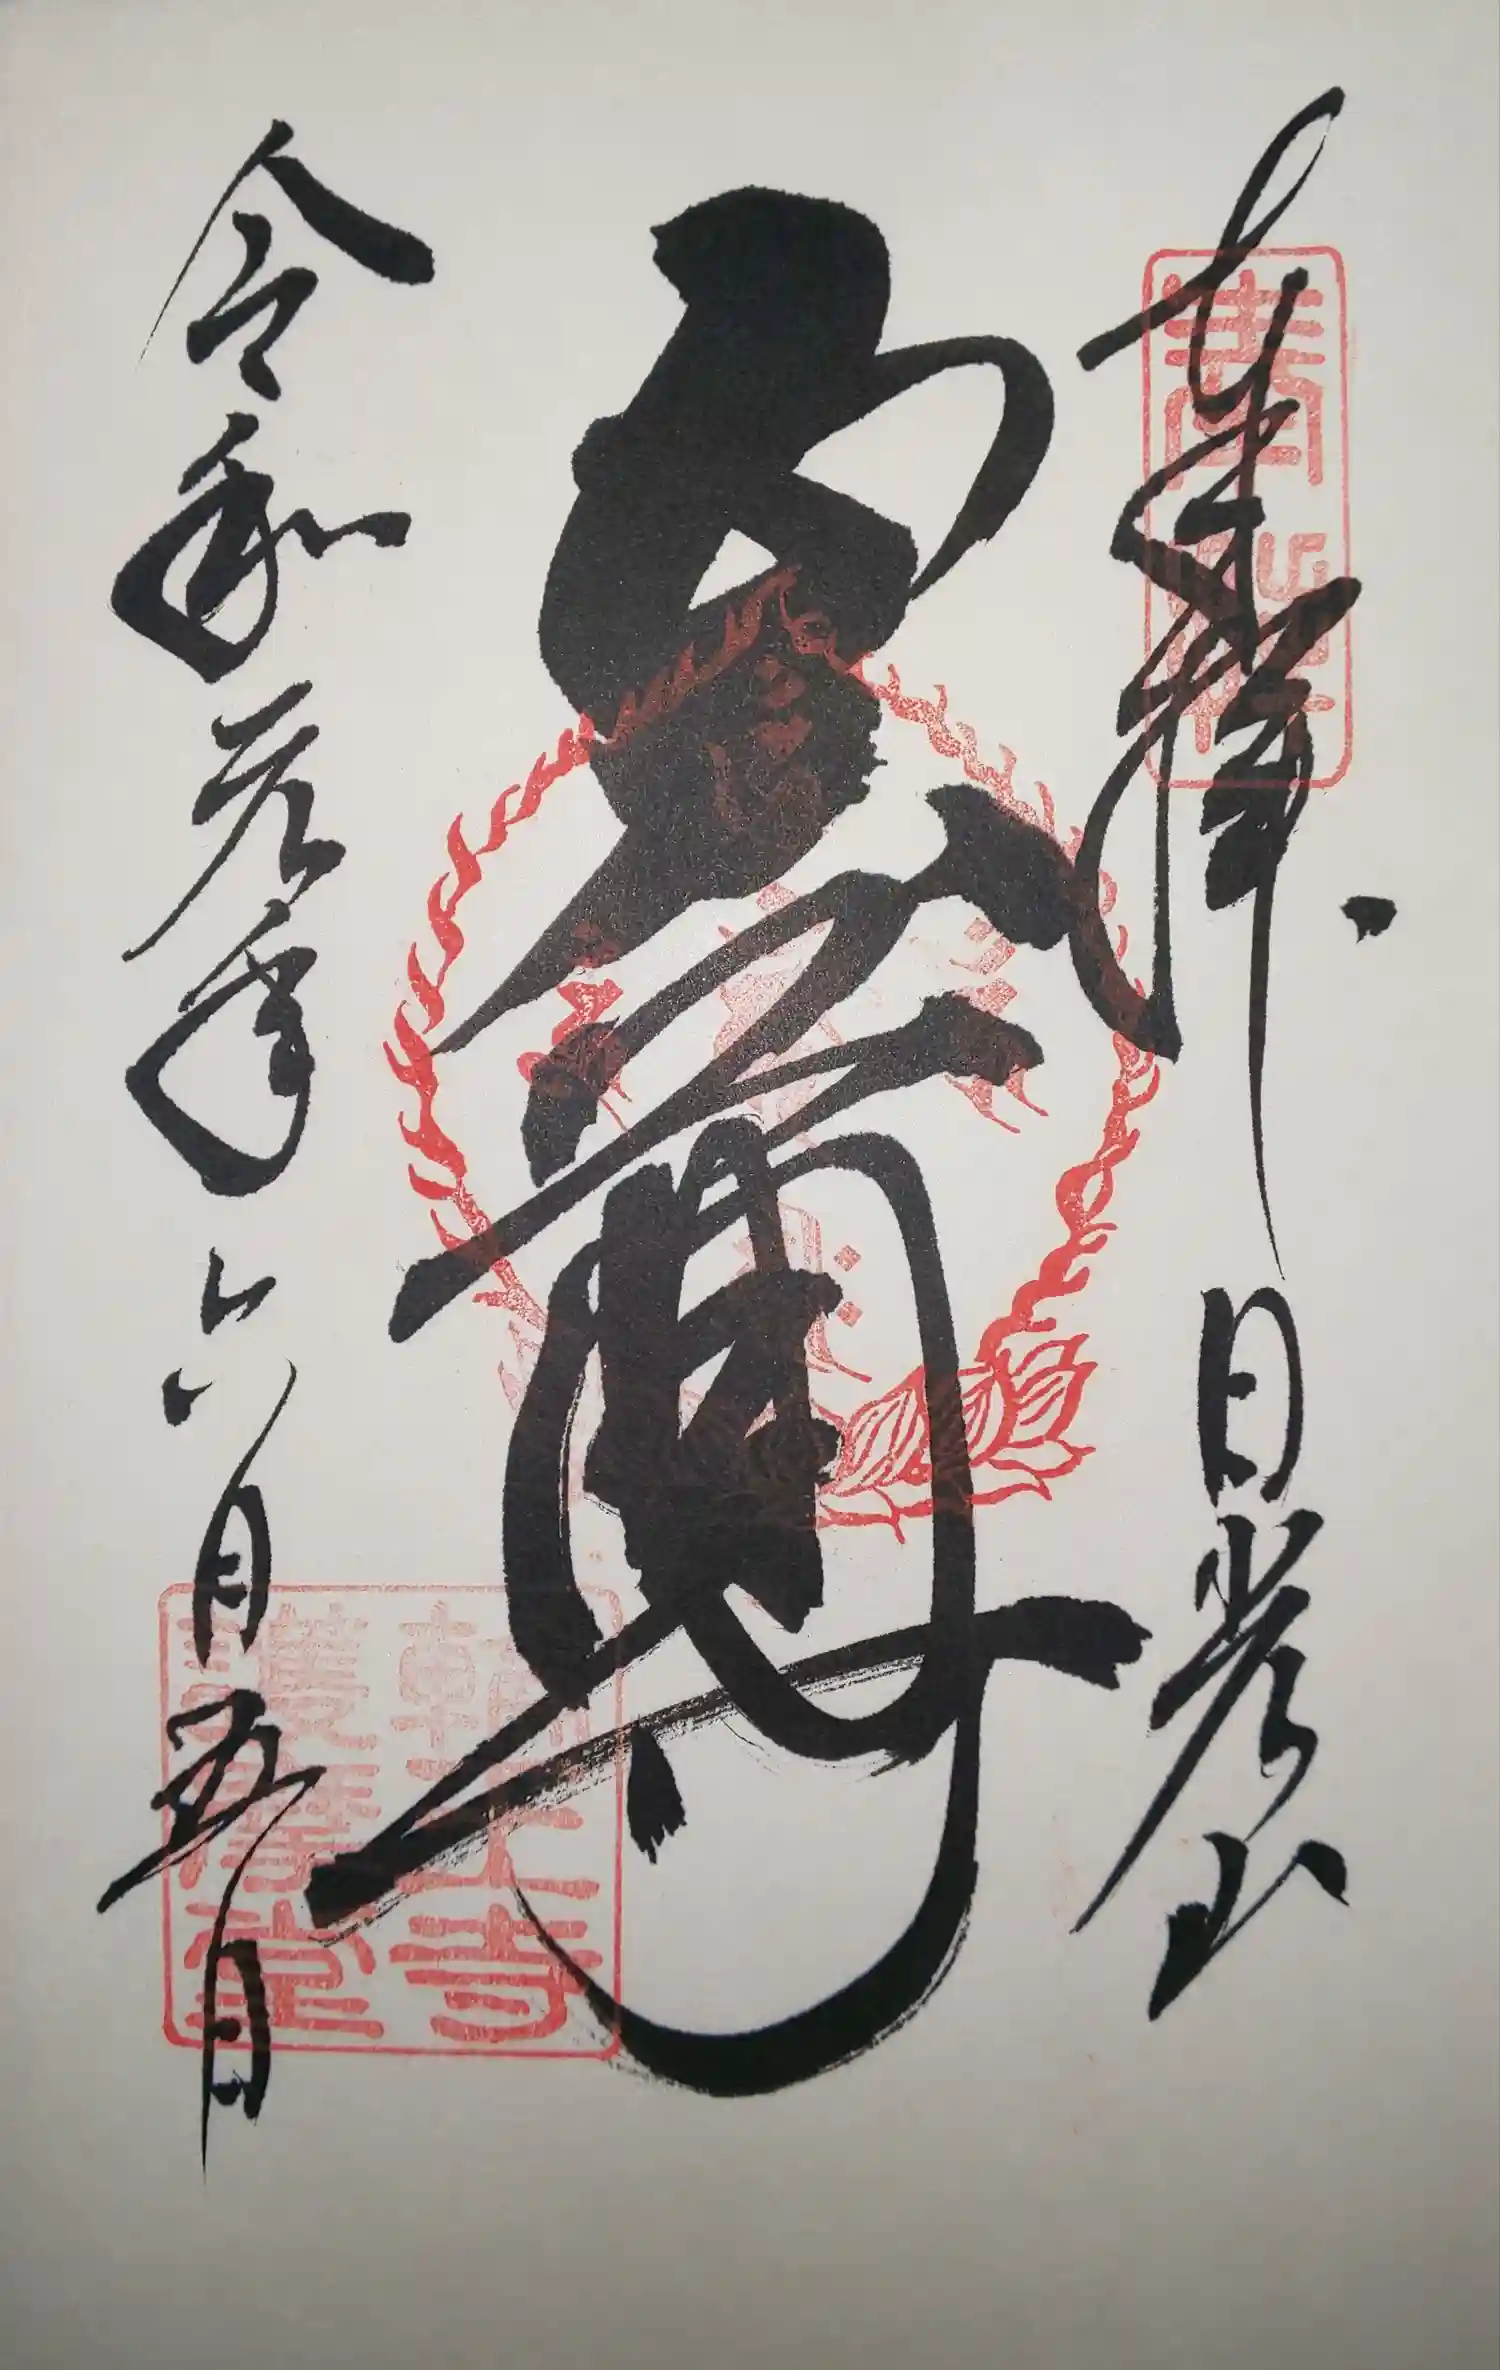 奉拝 日光山
五大尊
令和元年六月五日
輪王寺
護摩堂